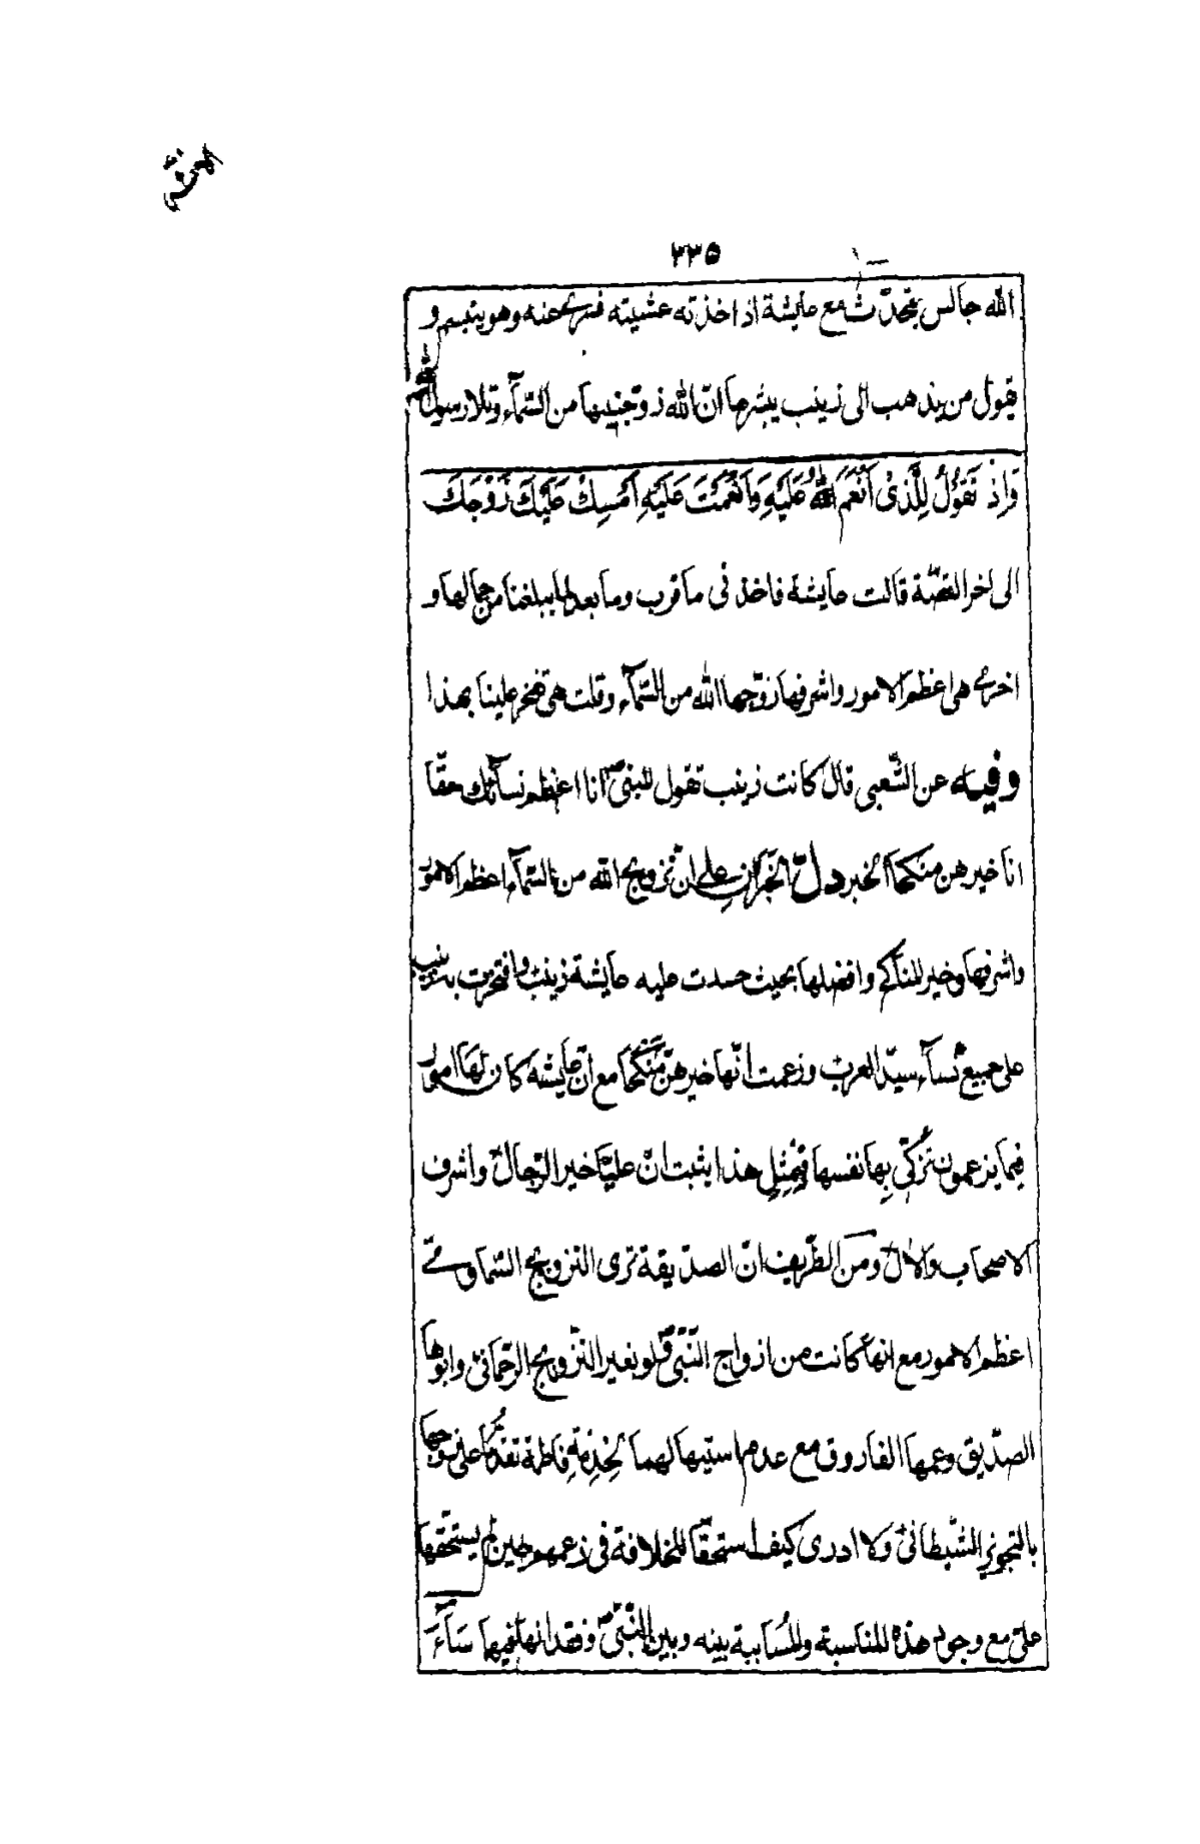 ٢٣٥
الله جالس يتحدّث مع عايشة اذ اخذته غشيته فسرى عنه وهو يتبسم و
يقول من يذهب الى زينب يبشرها انّ الله زوّجنيها من السّمآء وتلا رسول الله
وَاِذْ تَقُوْلُ لِلَّذِىْ اَنْعَمَ اللّٰهُ عَلَيْهِ وَاَنْعَمْتَ عَلَيْهِ اَمْسِكْ عَلَيْكَ زَوْجَكَ
الى اخر القصّة قالت عايشة فاخذنى ما قرب وما بعد لما يبلغنا من جمالها و
اخرى هى اعظم الامور واشرفها زوّجها الله من السّمآء وقلت هى تفخر علينا بهذا
وفيه عن الشّعبى قال كانت زينب تقول للنبىّ انا اعظم نسآئك حقّا
انا خيرهن منكحا الخبر دلّ الخبران على انّ تزويج الله من السّمآء اعظم الامور
واشرفها وخير المناكح وافضلها بحيث حسدت عليه عايشة زينب وافتخرت به زينب
على جميع نسآء سيّد العرب وزعمت انّها خيرهنّ منكحا مع انّ عايشه كان لها امور
فيما يزعمون تزكّى بها نفسها فبمثل هذا يثبت انّ عليّا خير الرّجال واشرف
الاصحاب والال ومن الظّريف انّ الصدّيقة ترى التزويج السّماوىّ
اعظم الامور مع انها كانت من ازواج النّبىّ ولو بغير التّزويج الرّحمانىّ وابوها
الصدّيق وعمها الفاروق مع عدم استيهالهما لخدمة فاطمة تقدّما على زوجها
بالتجويز الشّيطانىّ ولا ادرى كيف استحقّا للخلافة فى زعمهم حين لم يستحقّها
علىّ مع وجود هذه المناسبة والمسآببة بينه وبين النّبىّ وفقدانها فيهما سَآءَ